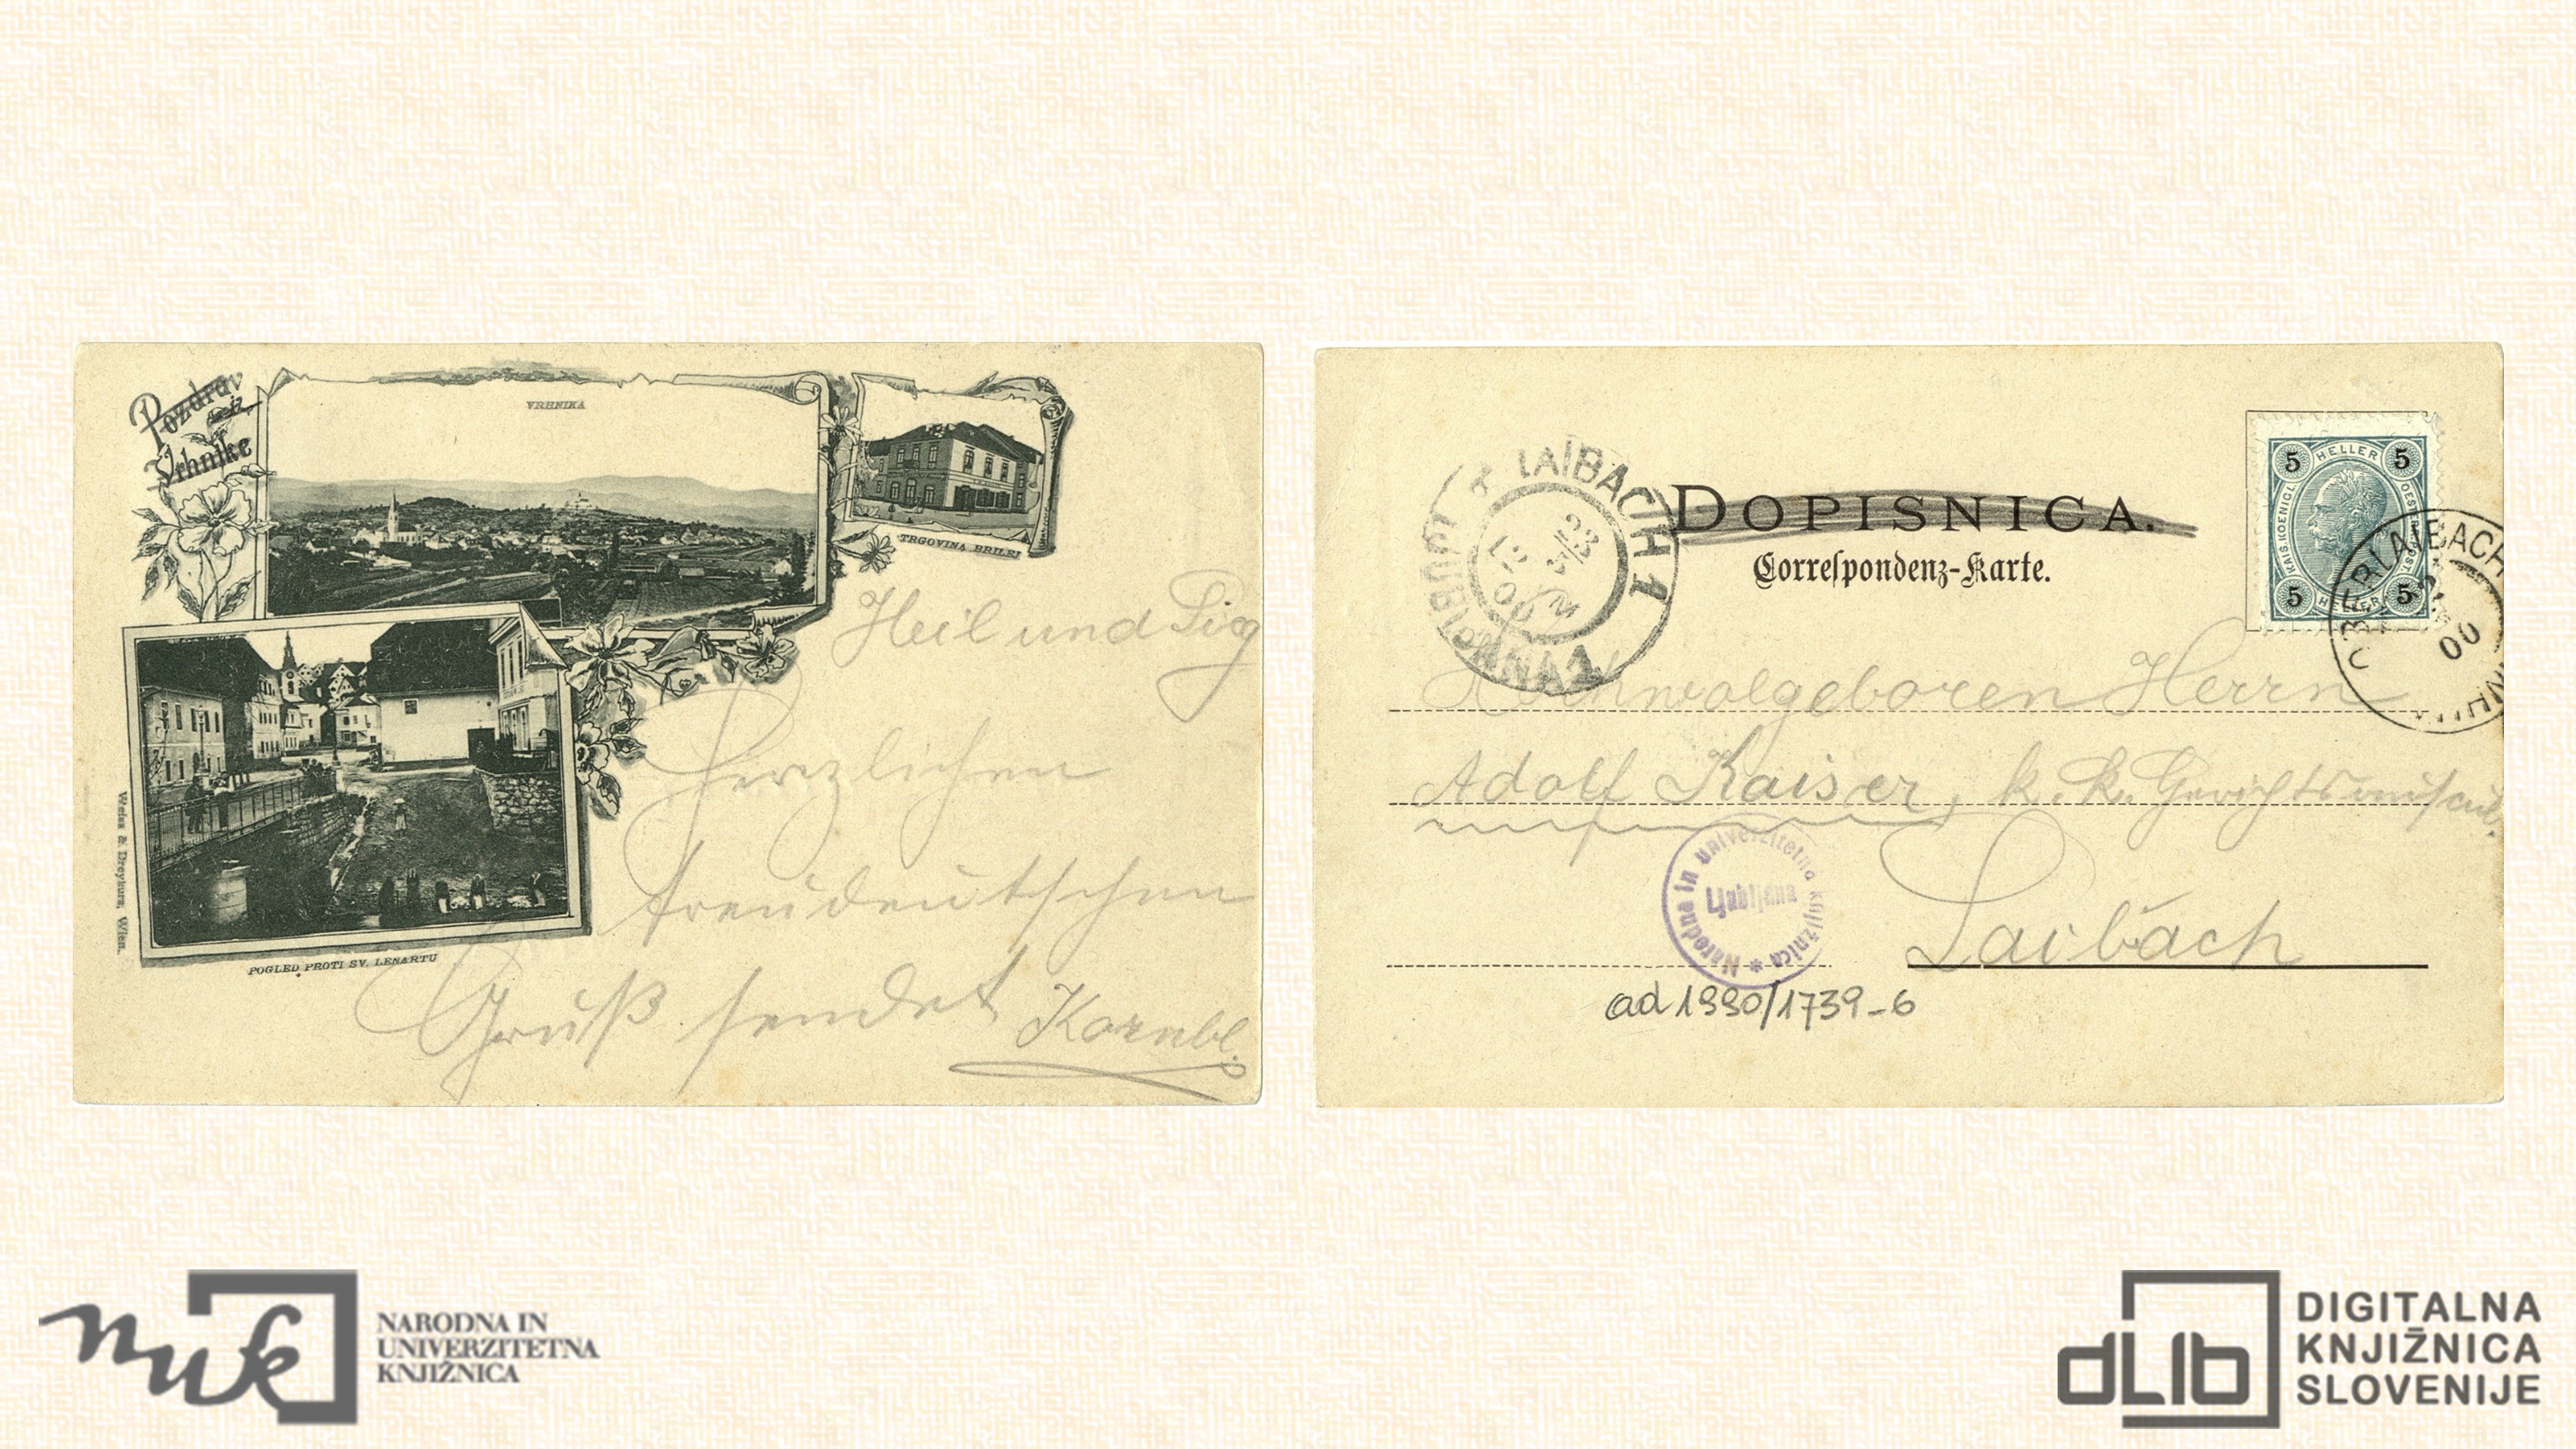 Pozdrav
iz
Vrhnike
VRHNIKA
TRGOVINA BRILEJ
Heil und Sieg
Herzlichen
treudeutschen
Gruß sendet Kornbl.
POGLED PROTI SV. LENARTU
Weiss & Dreykurs, Wien.
LAIBACH 1
LJUBLJANA 1
23
3
00
DOPISNICA.
Correspondenz-Karte.
5 HELLER 5
KAIS. KOENIGL. OESTERR. POST
5 HELLER 5
OBERLAIBACH
00
Hochwolgeboren Herrn
Adolf Kaiser, k. k.
Laibach
Narodna in univerzitetna knjižnica *
Ljubljana
ad 1990/1739-6
nuk
NARODNA IN
UNIVERZITETNA
KNJIŽNICA
dLib
DIGITALNA
KNJIŽNICA
SLOVENIJE